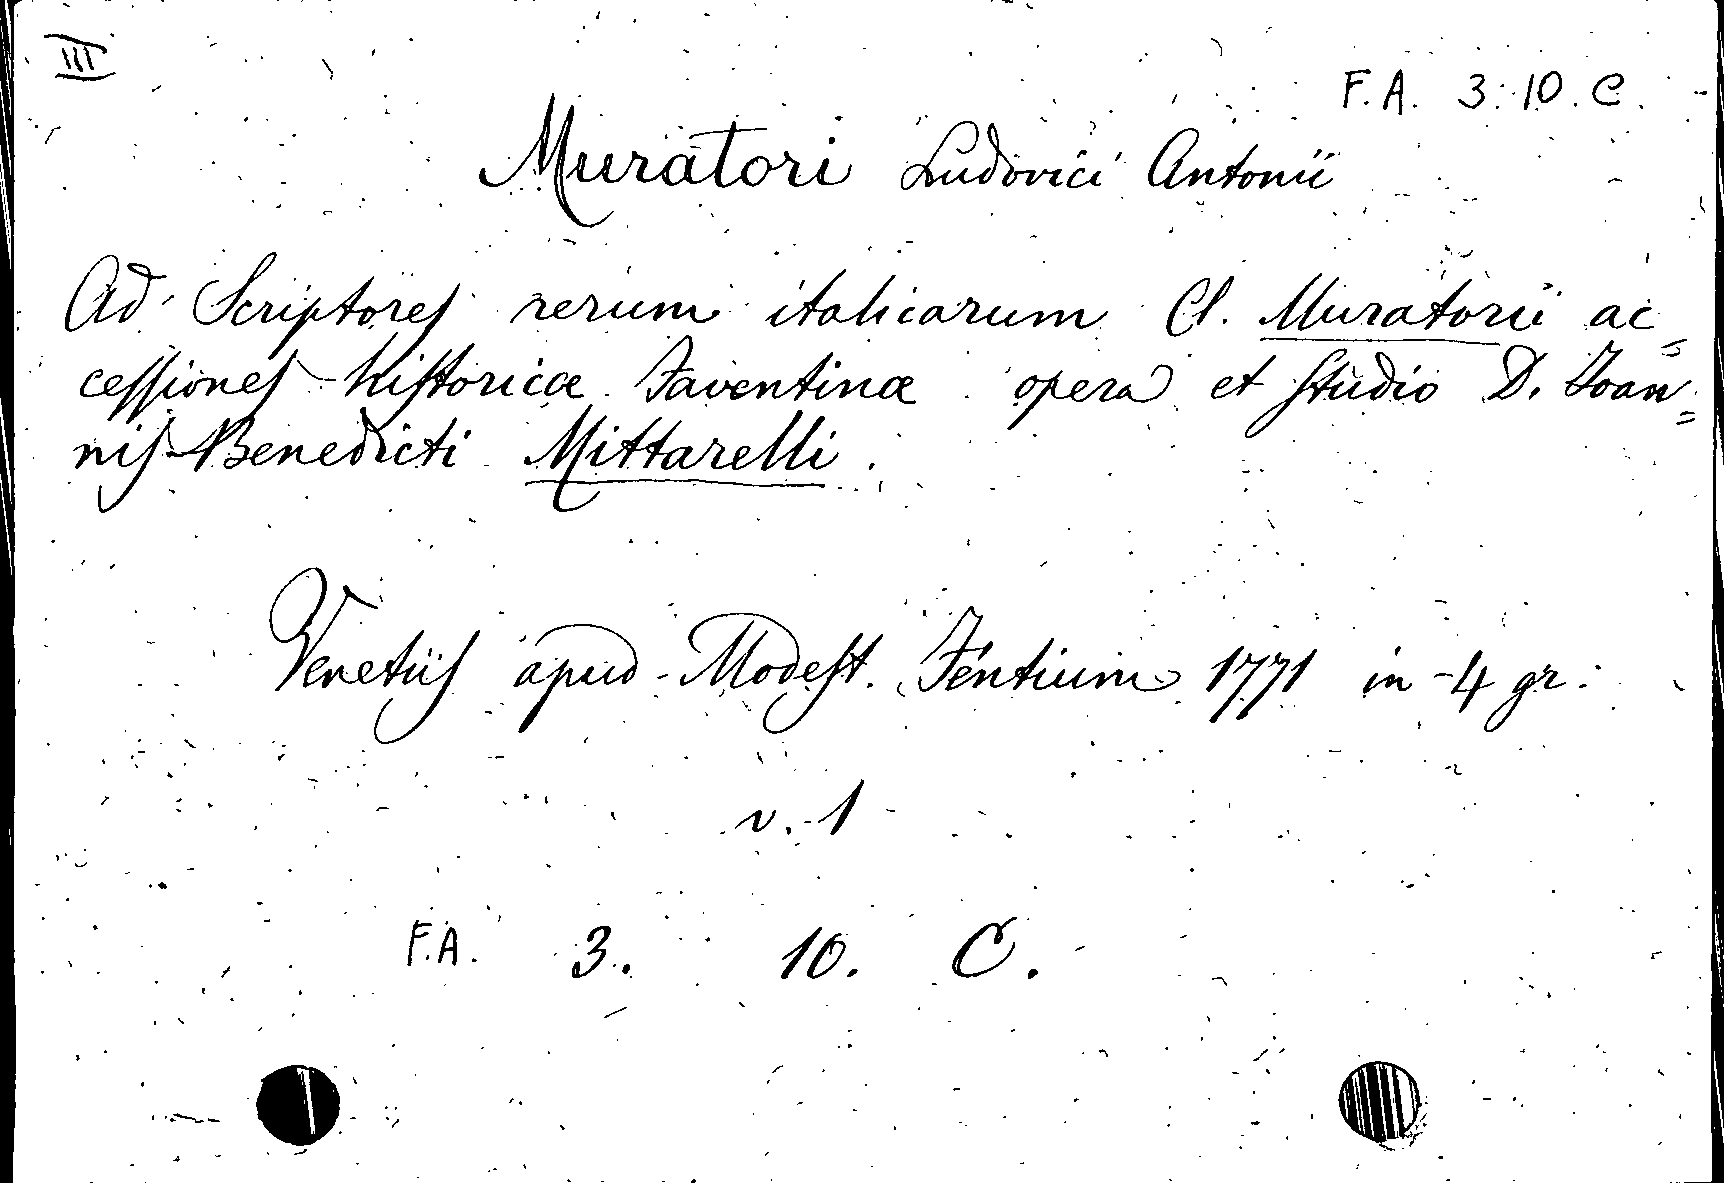 III
F.A. 3. 10. C.
Muratori Ludovici Antonii
Ad Scriptores rerum italicarum Cl. Muratorii ac=
cessiones historicæ Faventinæ opera et studio D. Joan=
nis Benedicti Mittarelli.
Venetiis apud Modest. Fentium 1771 in 4 gr:
v. 1
F.A. 3. 10. C.